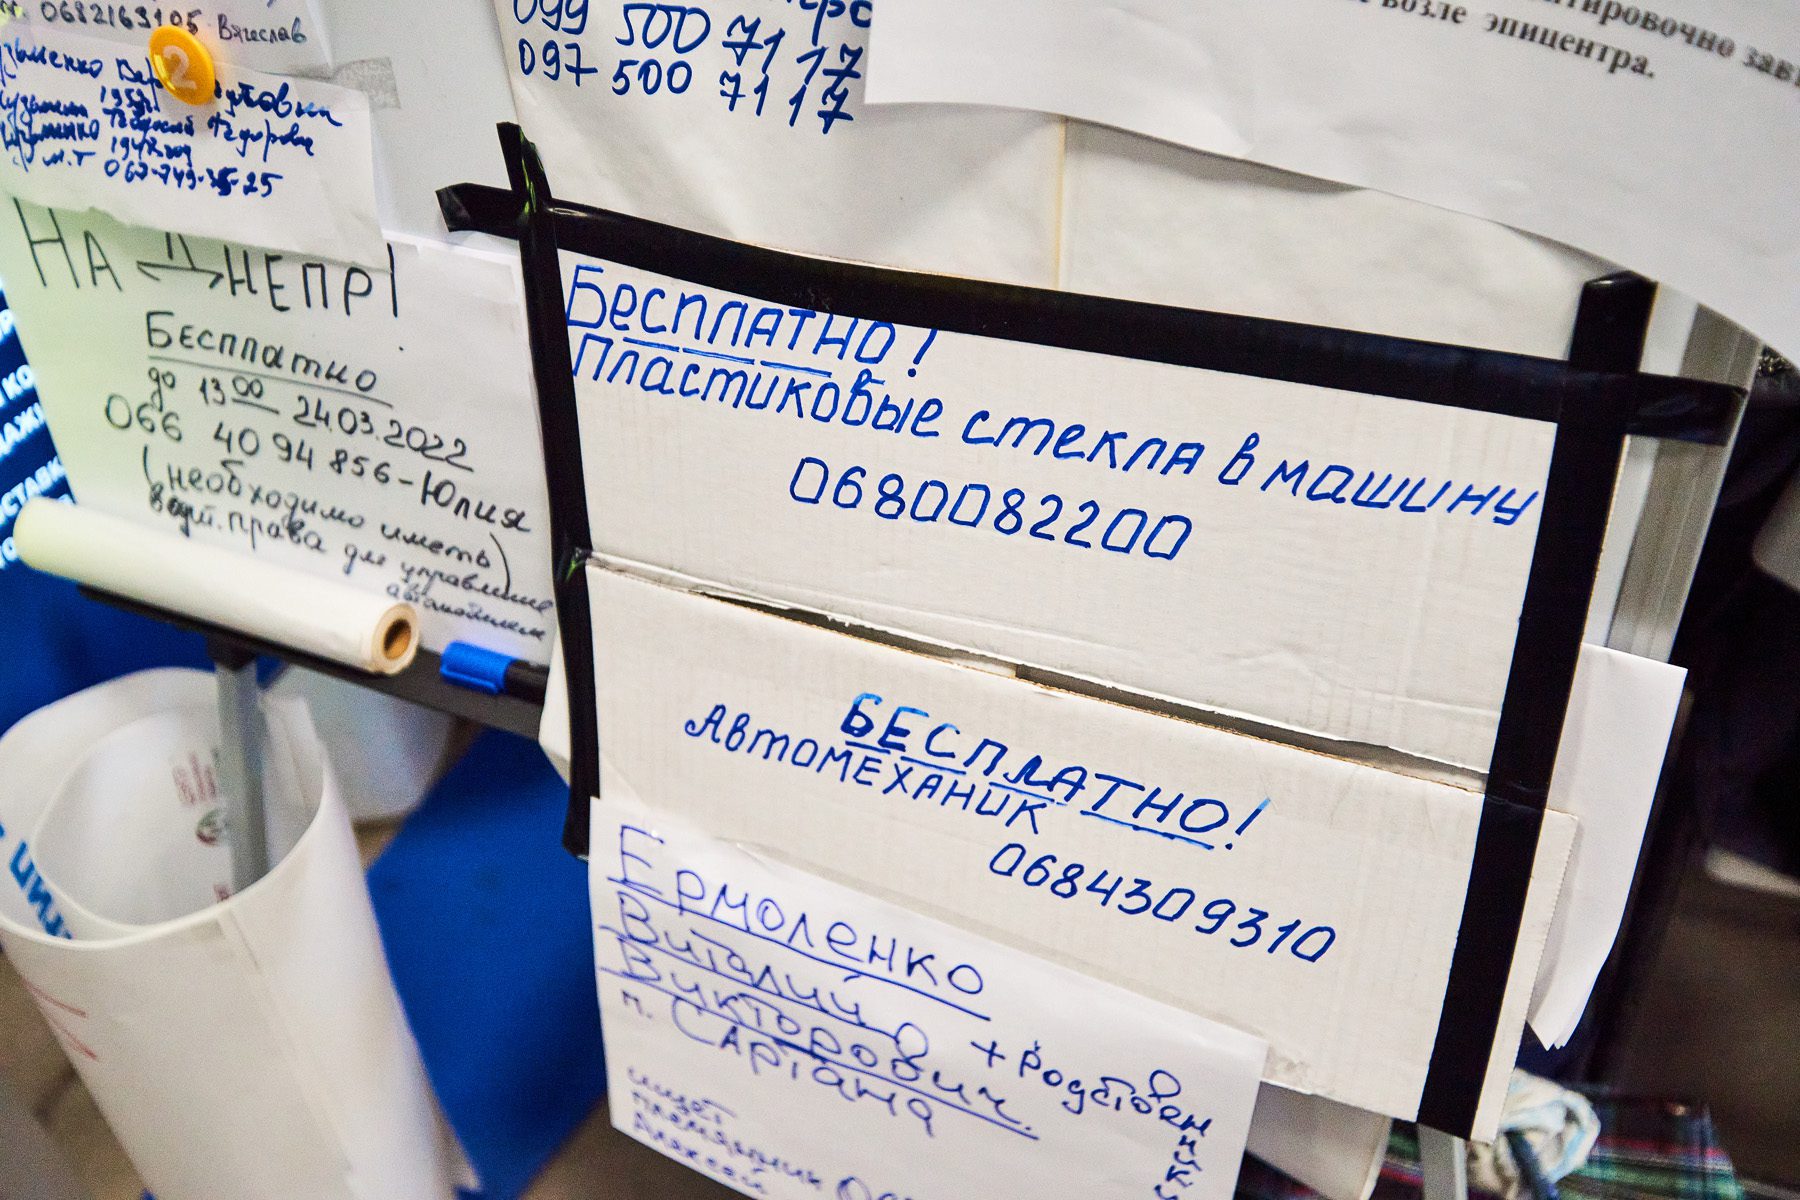 0682163105 Вячеслав
1947
067-749-35-25
НА ДНЕПР!
Бесплатно
до 13 00 24.03.2022
066 40 94 856 - Юлия
(необходимо иметь)
права для управления
автомобилем
099 500 71 17
097 500 71 17
возле эпицентра.
Бесплатно!
Пластиковые стекла в машину
0680082200
БЕСПЛАТНО!
Автомеханик
0684309310
Ермоленко
Виталий
Викторович. + родственники
п. Сартана
ищет
племянник
Алексей